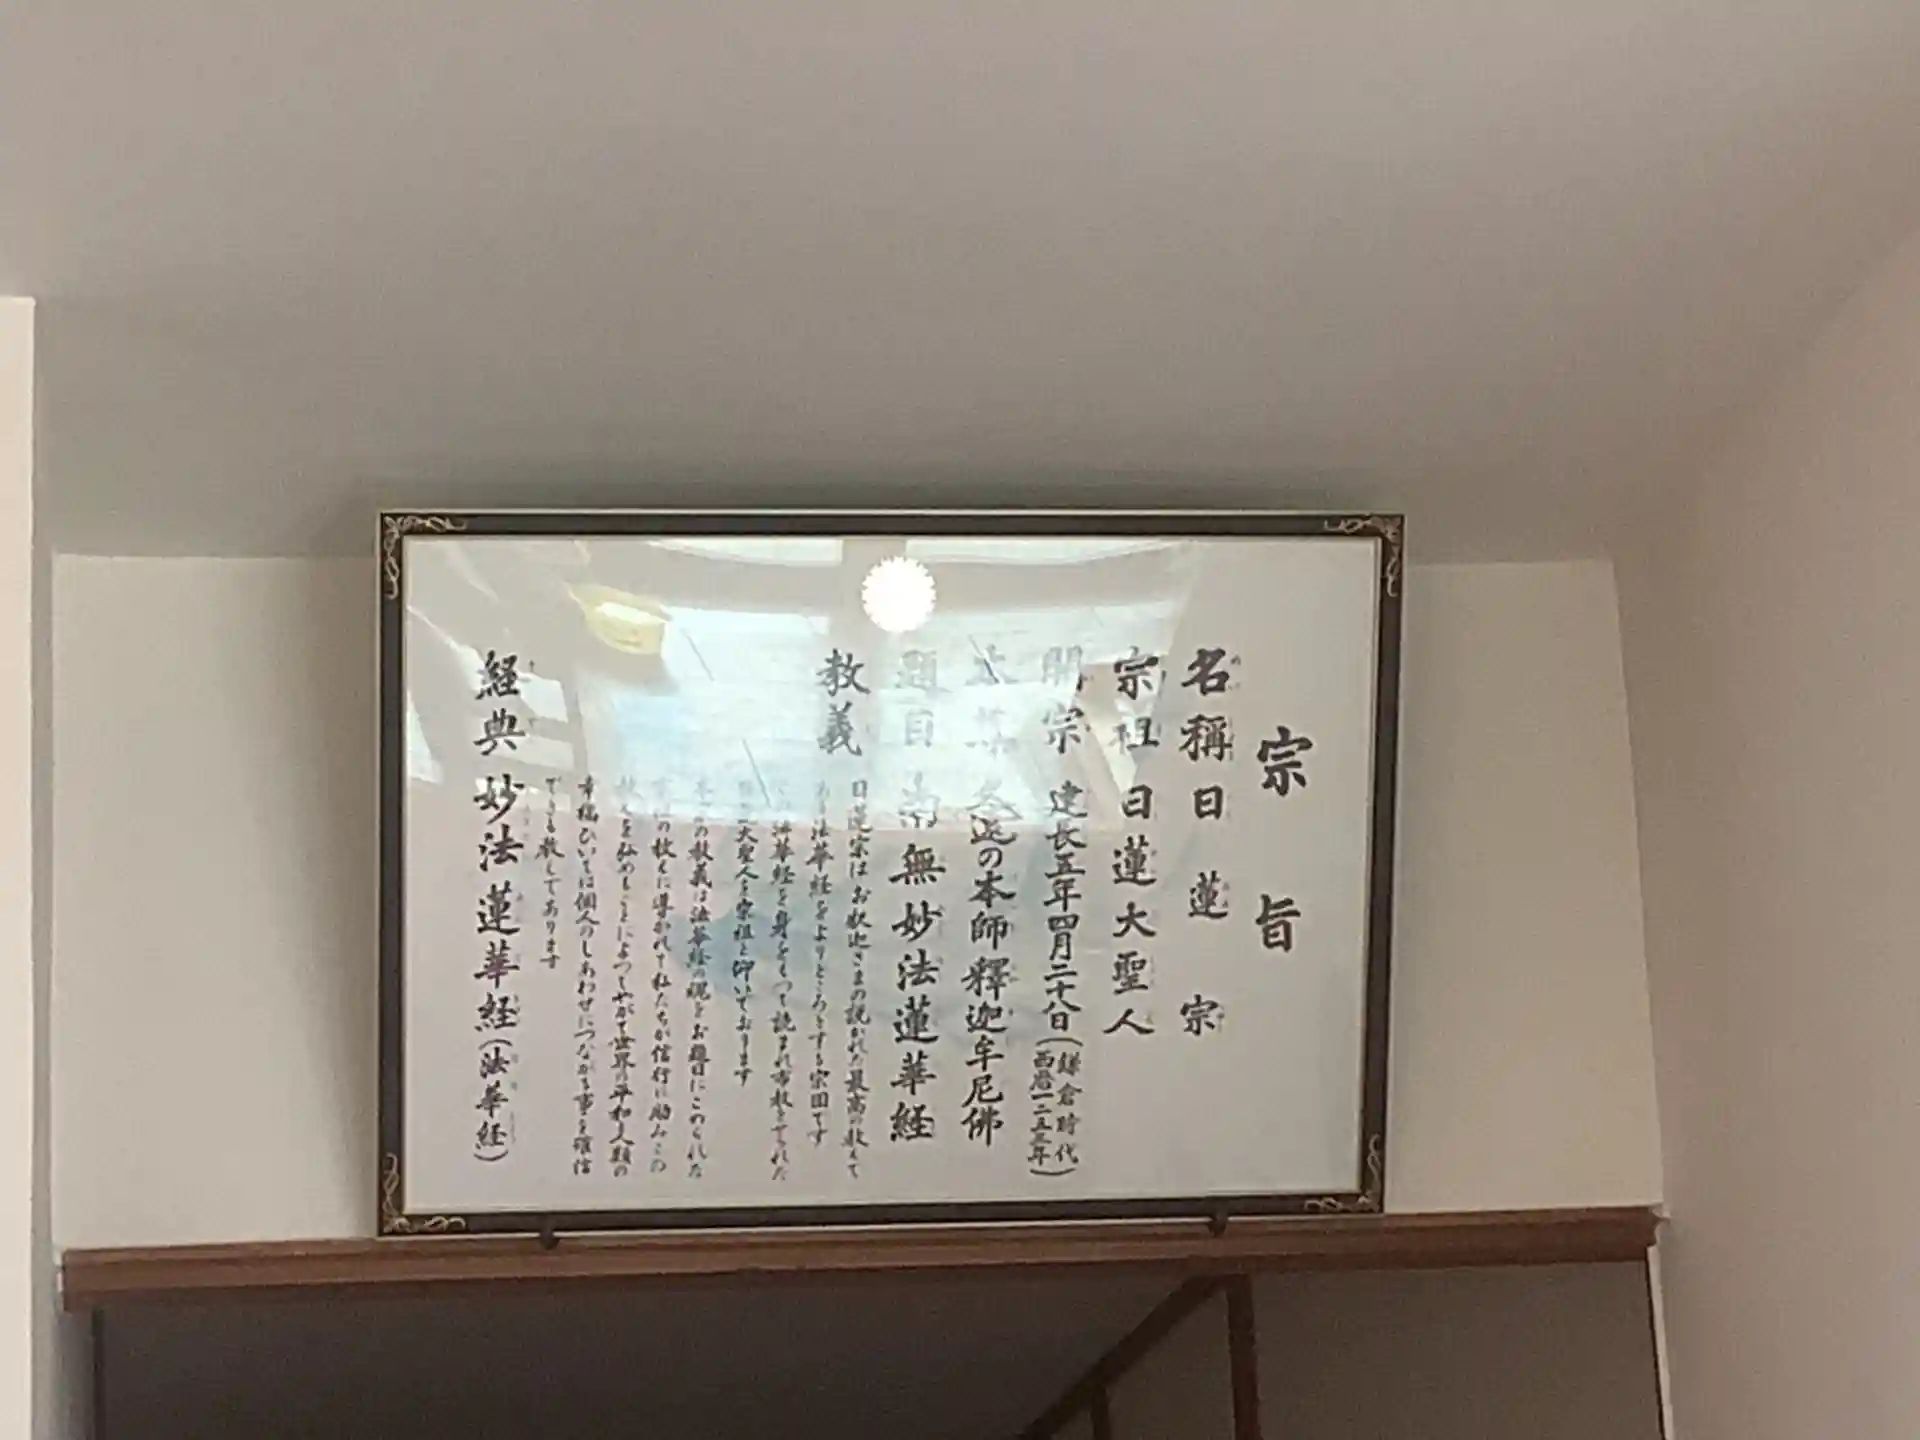 宗旨
名稱 日蓮宗
宗祖 日蓮大聖人
開宗 建長五年四月二十八日（鎌倉時代 西暦一二五三年）
本尊 久遠の本師釋迦牟尼佛
題目 南無妙法蓮華経
教義 日蓮宗はお釈迦さまの説かれた最高の教えで
ある法華経をよりどころとする宗団です
この法華経を身をもって読まれ布教せられた
日蓮大聖人を宗祖と仰いでおります
の教義は法華経の魂をお題目にこめられた
の教えに導かれて私たちが信行に励みこの
教えを弘めることによつてやがて世界の平和人類の
幸福ひいては個人のしあわせにつながる事を確信
できる教してあります
経典 妙法蓮華経（法華経）